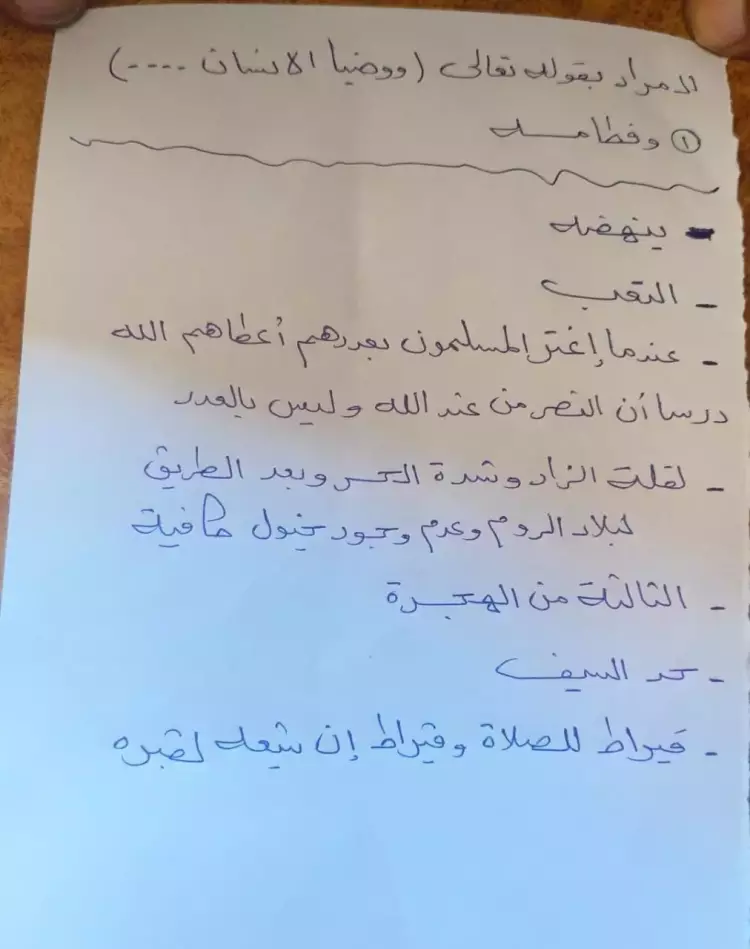 الامراد بقوله تعالى (ووضيا الانسان ....)
① وفطامه
- ينهضه
- التعب
- عندما إغتر المسلمون بعددهم أعطاهم الله
درسا أن النصر من عند الله وليس بالعدد
- لقلة الزاد وشدة الحر وبعد الطريق
لبلاد الروم وعدم وجود خيول كافية
- الثالثة من الهجرة
- حد السيف
- قيراط للصلاة وقيراط إن شيعه لقبره